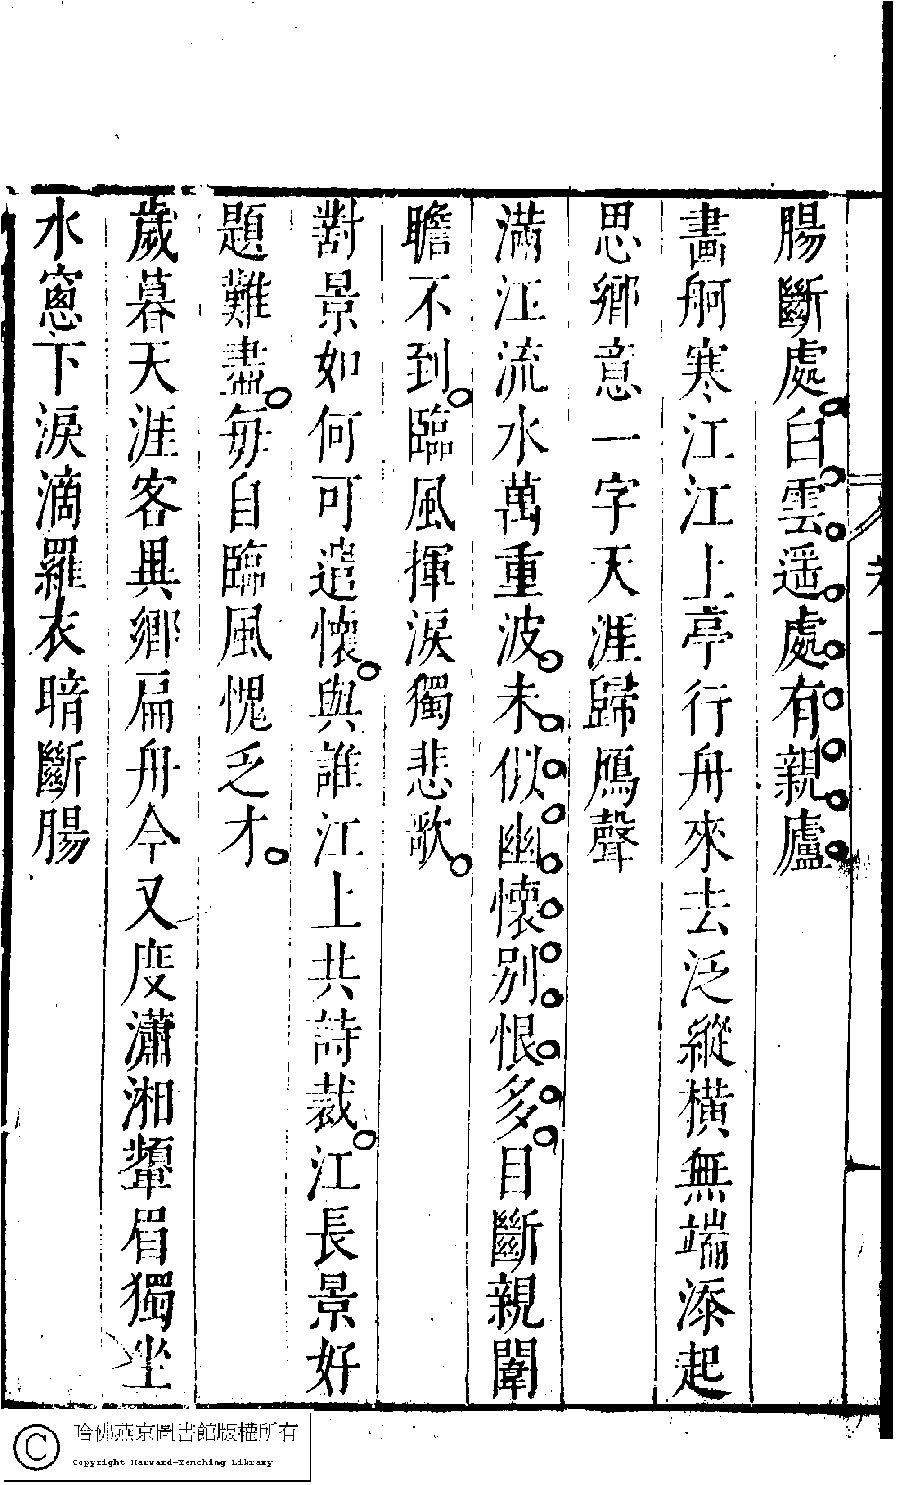 腸斷處白雲遥處有親廬
畵舸寒江江上亭行舟來去泛縱橫無端添起
思鄉意一字天涯歸鴈聲
滿江流水萬重波未似幽懷别恨多目斷親闈
瞻不到臨風揮淚獨悲歌
對景如何可遣懷與誰江上共詩裁江長景好
題難盡每自臨風愧乏才
歲暮天涯客異鄉扁舟今又度瀟湘顰眉獨坐
水窻下淚滴羅衣暗斷腸
哈佛燕京圖書館版權所有
Copyright Harvard-Yenching Library